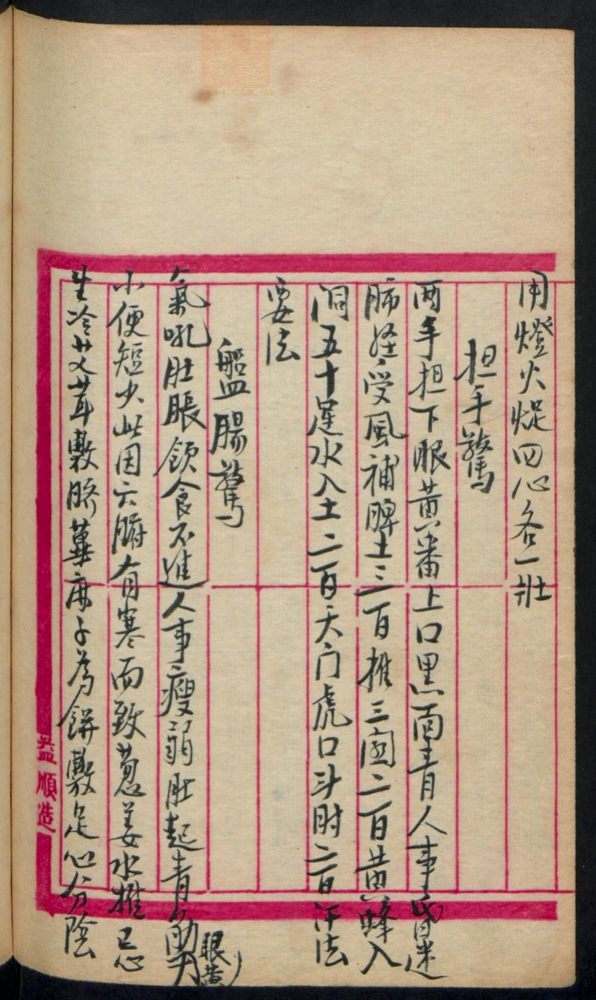 用燈火焠四心各一壯
担手驚
両手担下眼黄番上口黒面青人事昏迷
肺経受風補脾土三百推三関二百黄蜂入
洞五十運水入土二百天门虎口斗肘二百汗法
要法
盤腸驚
氣吼肚脹飲食不進人事瘦弱肚起青筋眼黄
小便短少此因六腑有寒而致葱姜水推忌
生冷艾茸敷臍萆麻子為餅敷足心分陰
益順造